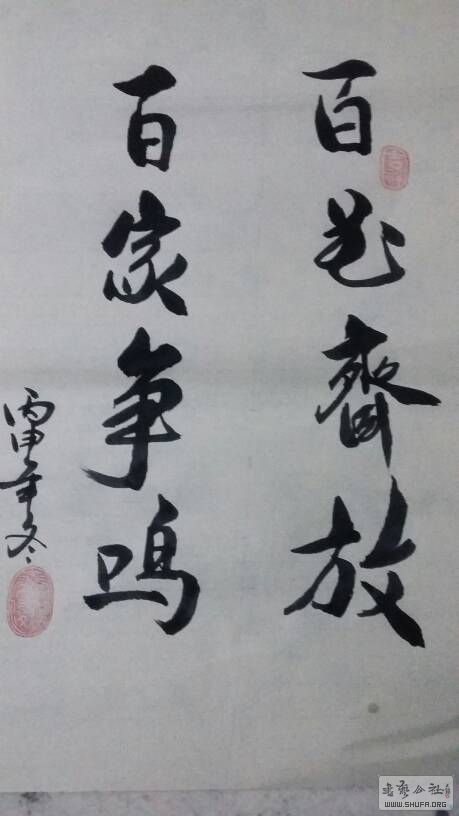 百花齊放
百家争鸣
丙申年冬
书艺公社
WWW.SHUFA.ORG